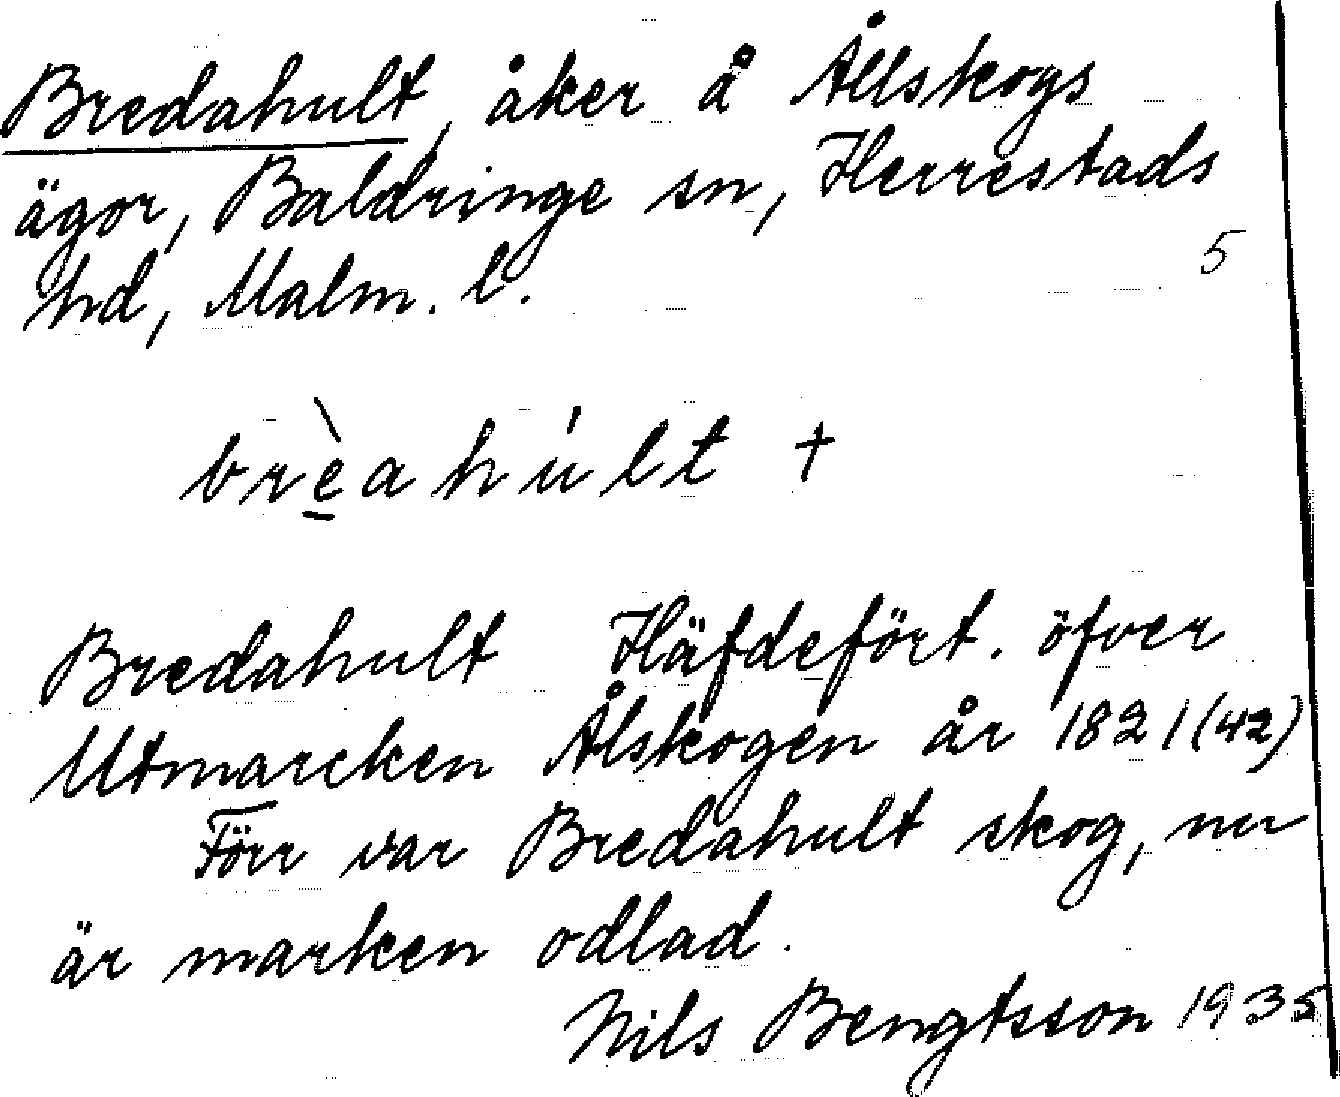 Bredahult, åker å Ållskogs
ägor, Baldringe sn, Herrestads
hd, Malm. l.
5
brèahúlt +
Bredahult Häfdefört. öfver
Utmarcken Ålskogen år 1821(42)
Förr var Bredahult skog, nu
är marken odlad.
Nils Bengtsson 1935